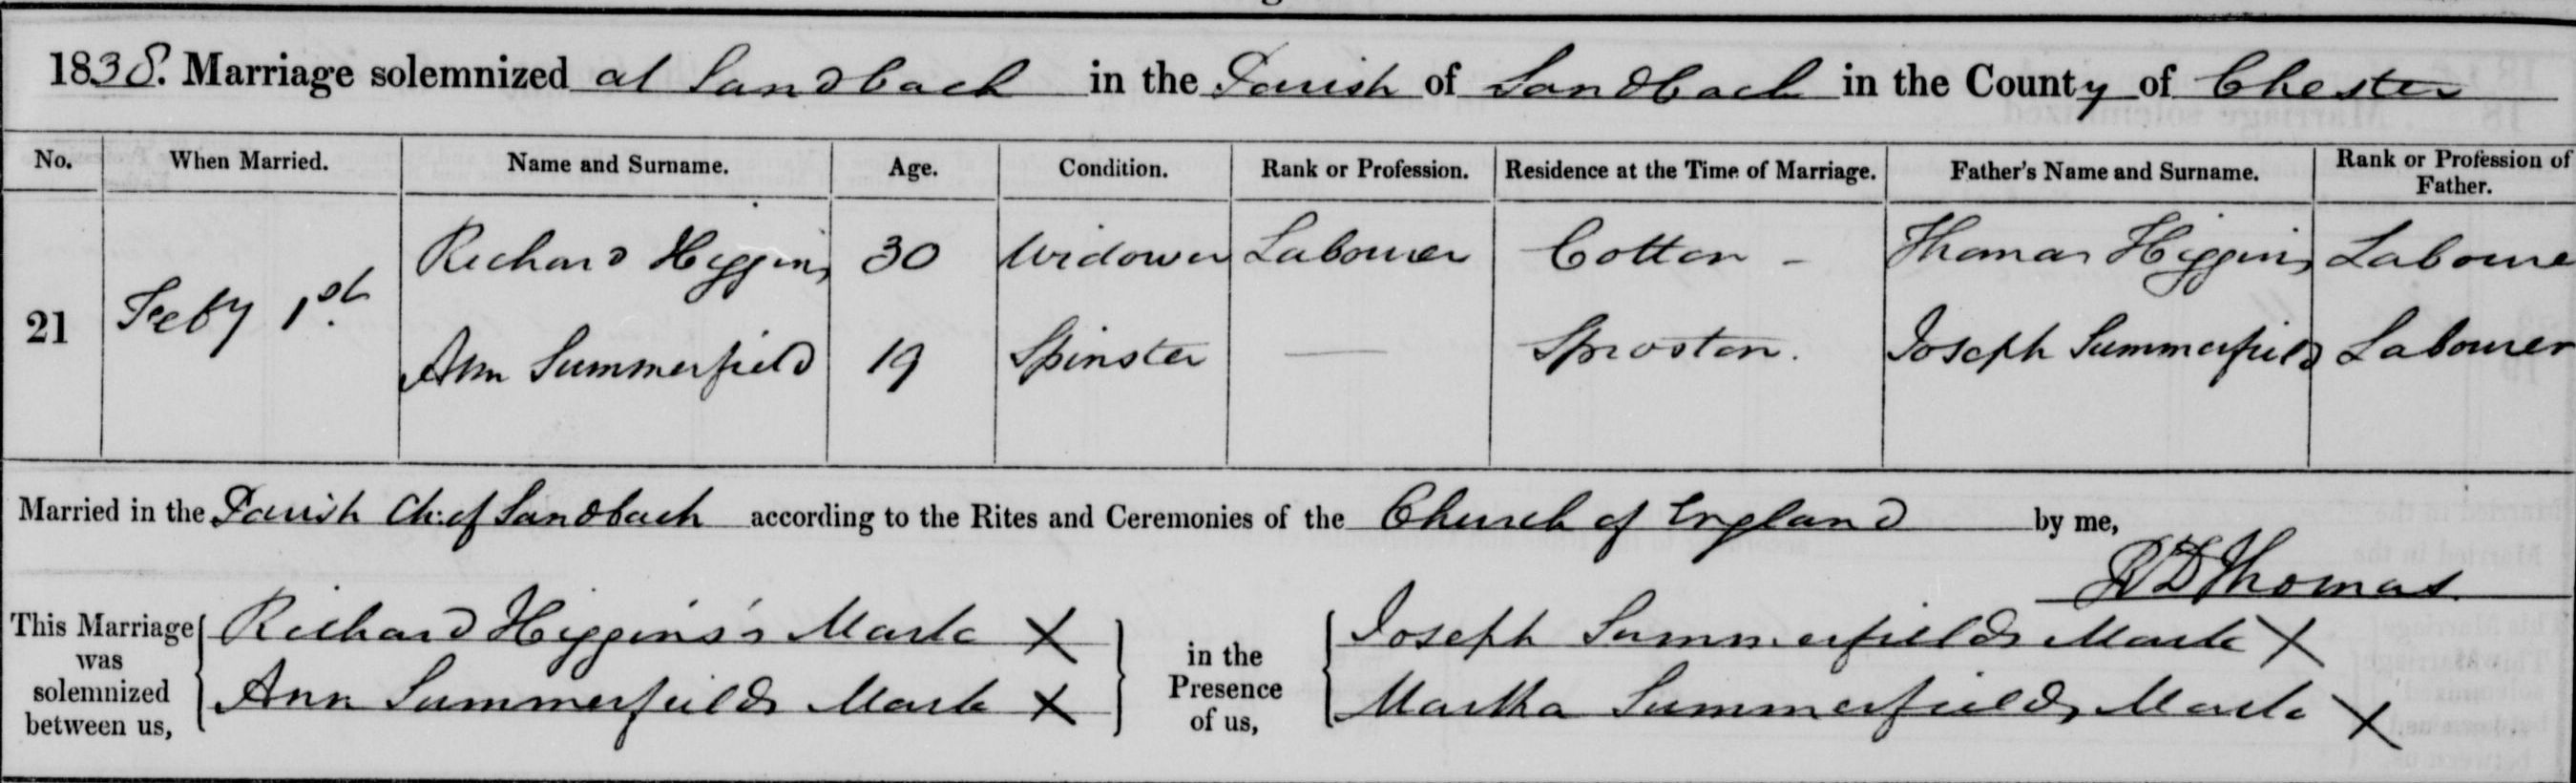 1838. Marriage solemnized at Sandbach in the Parish of Sandbach in the County of Chester
No. When Married. Name and Surname. Age. Condition. Rank or Profession. Residence at the Time of Marriage. Father's Name and Surname. Rank or Profession of Father.
Richard Higgins 30 Widower Labourer Cotton - Thomas Higgins Laboure
21 Feby 1st.
Ann Summerfield 19 Spinster — Sproston. Joseph Summerfield Labourer
Married in the Parish Ch: of Sandbach according to the Rites and Ceremonies of the Church of England by me,
Thomas
This Marriage was solemnized between us, Richard Higgins's Mark X in the Presence of us, Joseph Summerfields Mark X
Ann Summerfields Mark X Martha Summerfields Mark X